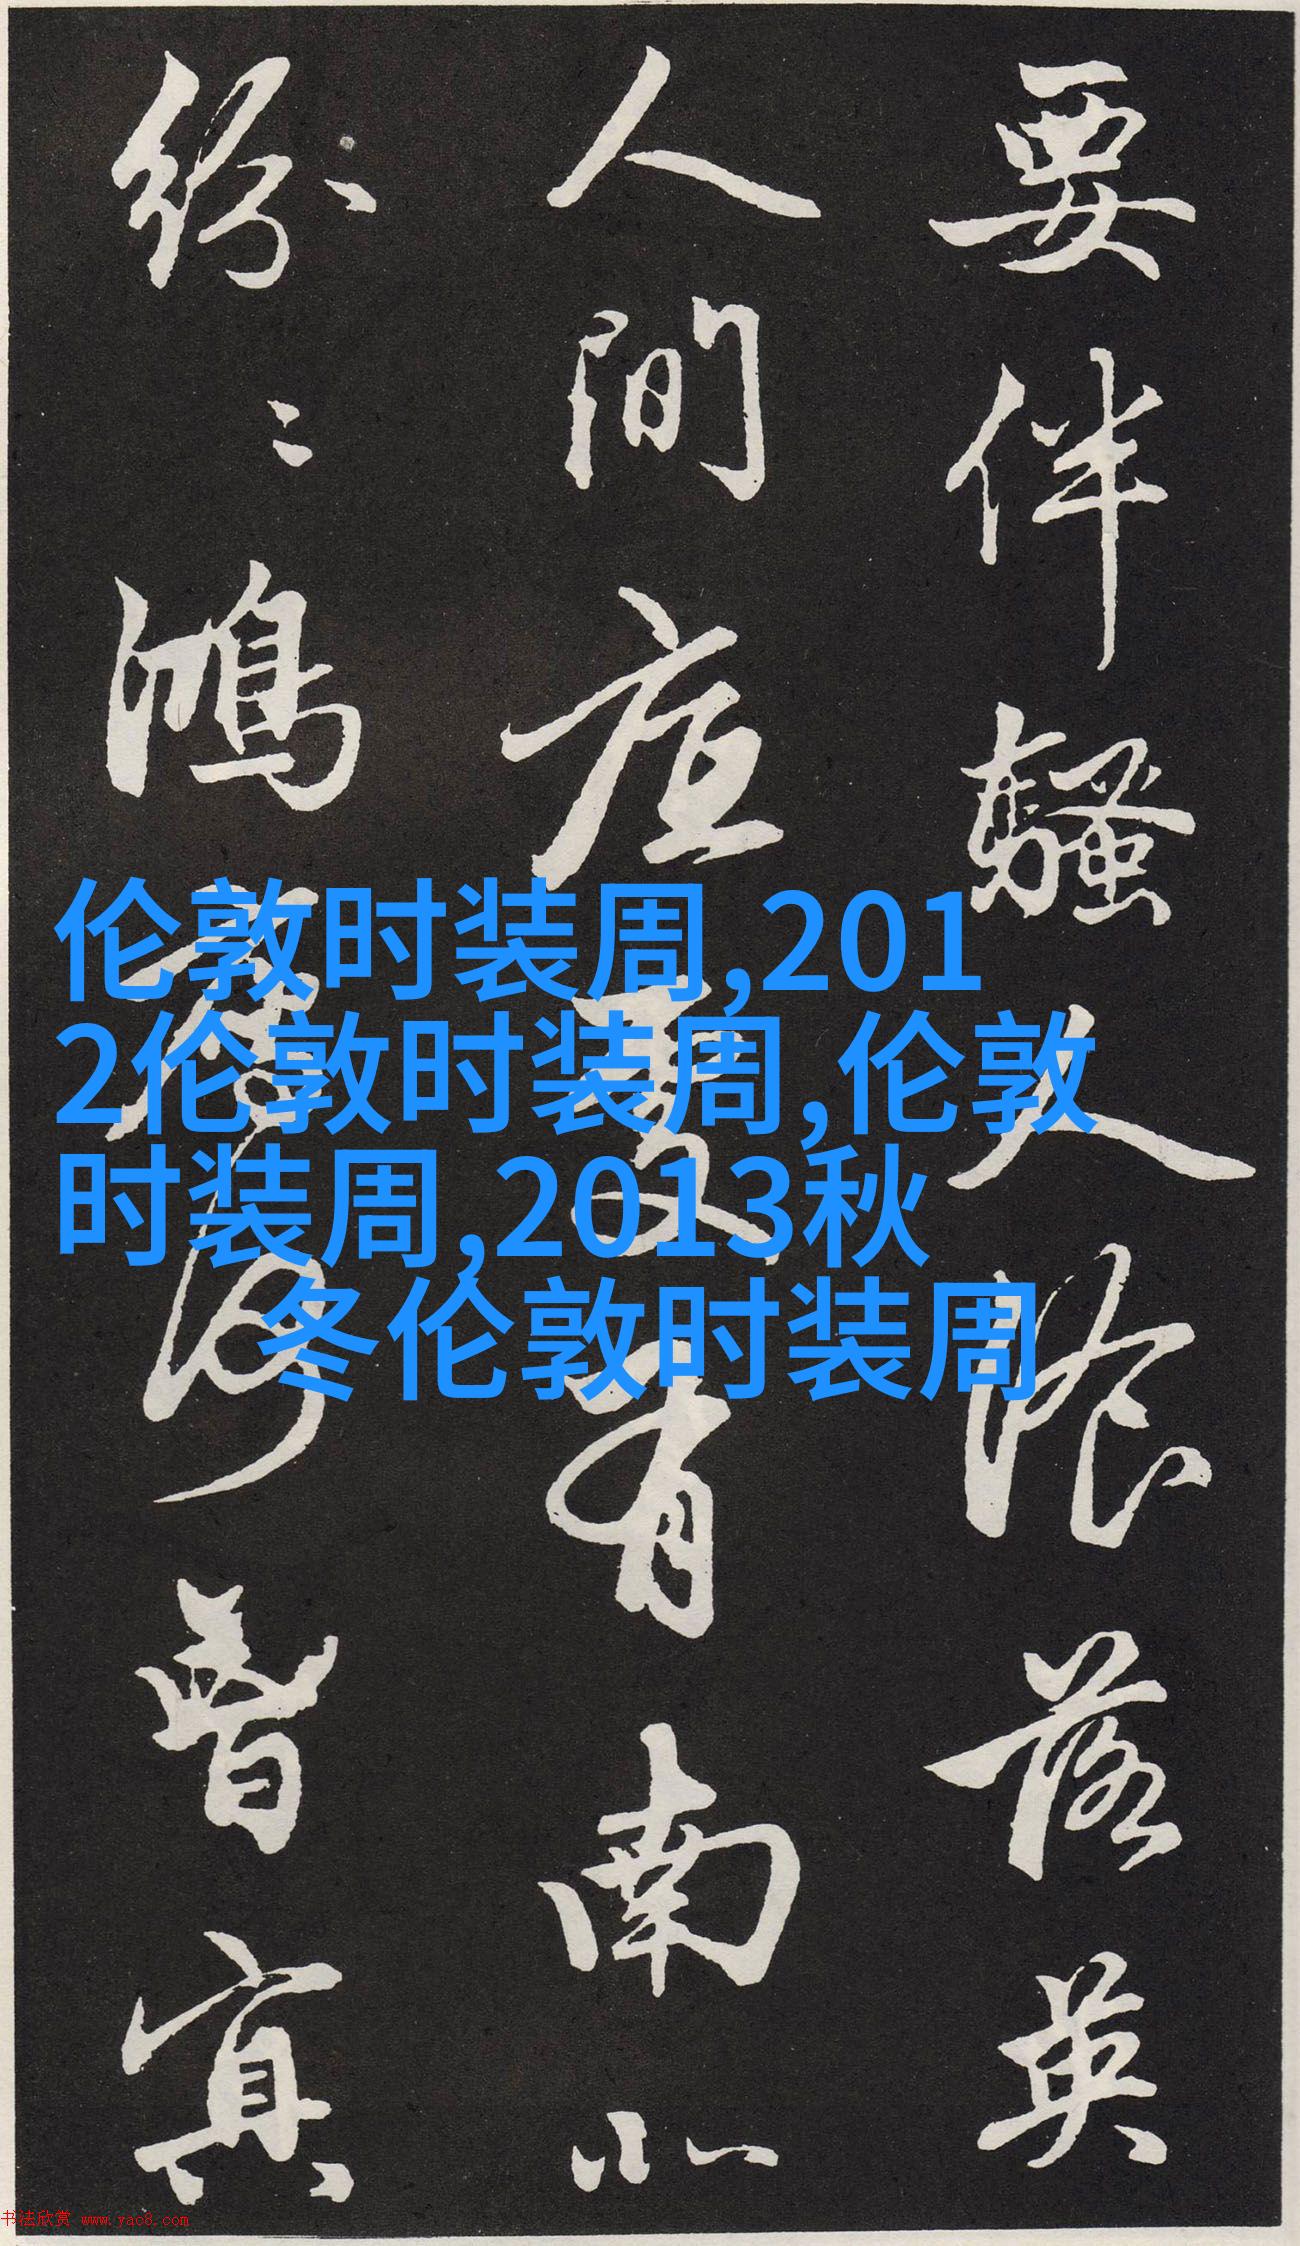 要伴騷人飡落英
人間底處有南北
紛〻鴻鴈何曾冥
伦敦时装周,201
2伦敦时装周,伦敦
时装周,2013秋
冬伦敦时装周
书法欣赏 www.yac8.com